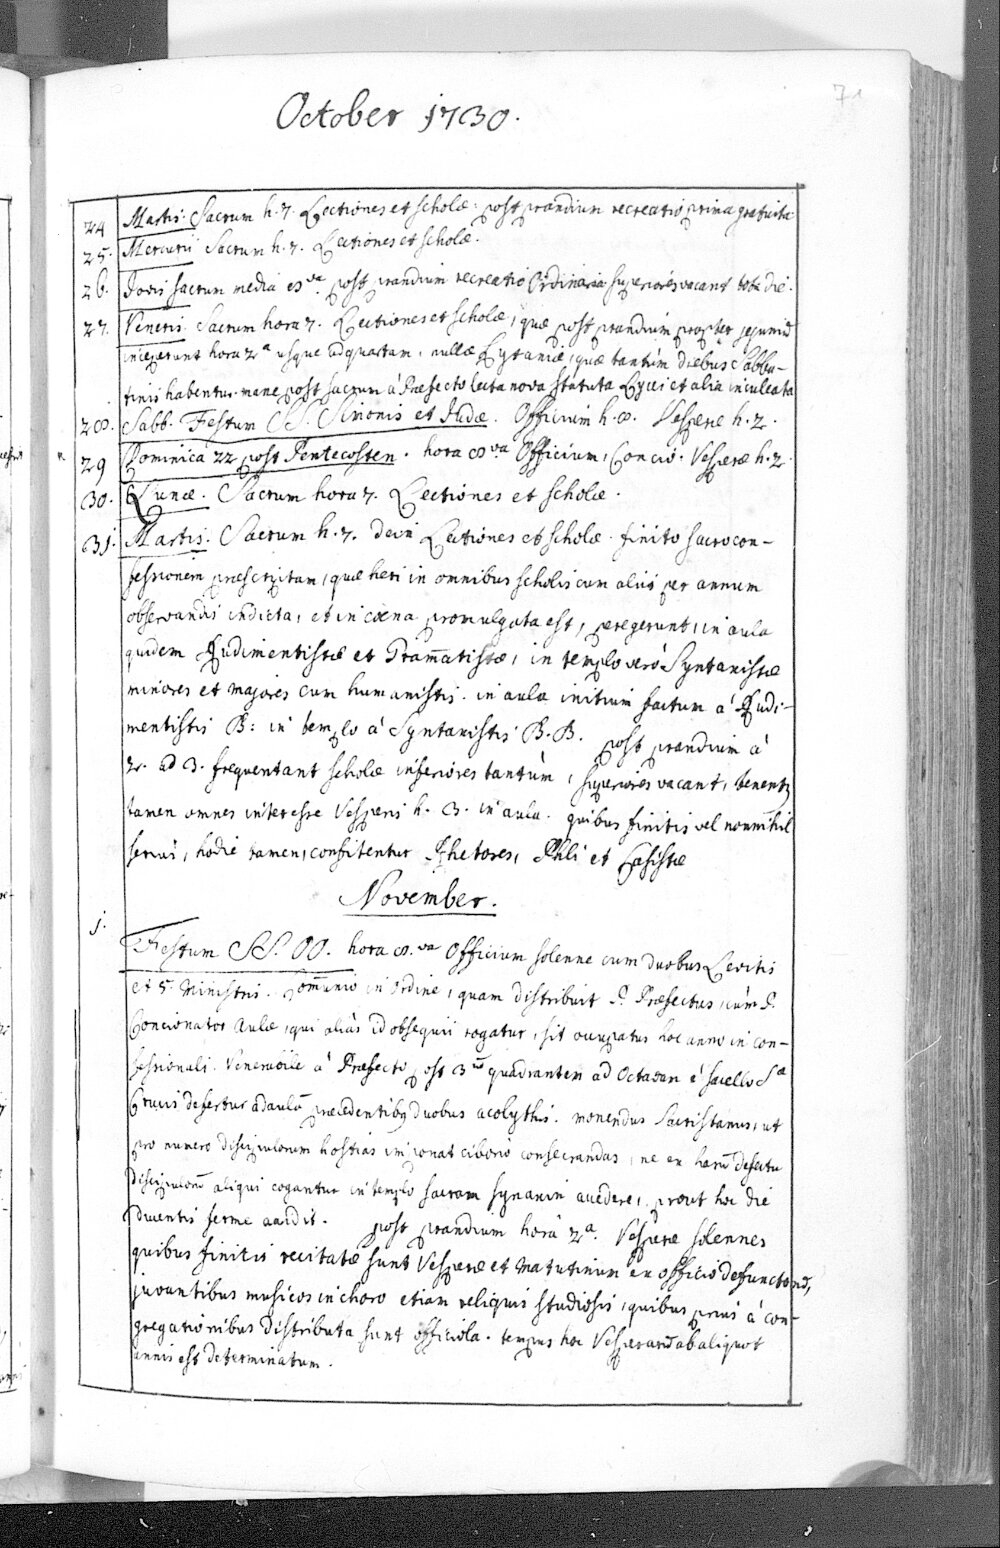 71
October 1730.
24 Martis. Sacrum h. 7. Lectiones et scholæ. post prandium recreatio prima gratuita
25. Mercurii Sacrum h. 7. Lectiones et scholæ.
26. Jovis sacrum media 8va post prandium recreatio Ordinaria superiores vacant tota die.
27. Veneris. Sacrum hora 7. Lectiones et scholæ, quæ post prandium propter jejuniũ
inceperunt hora 2a usque ad quartam, nullæ Lytaniæ, quæ tantùm diebus Sabba-
tinis habentur. mane post sacrum à Præfecto lecta nova statuta Lycei et alia inculcata
28. Sabb. Festum SS. Simonis et Judæ. Officium h. 8. Vesperæ h. 2.
29 Dominica 22 post Pentecosten. hora 8va Officium, Concio. Vesperæ h. 2.
30. Lunæ. Sacrum hora 7. Lectiones et scholæ.
31. Martis. Sacrum h. 7. dein Lectiones et scholæ. finito sacro con-
fessionem præscriptam, quæ heri in omnibus scholis cum aliis per annum
observandis indicta, et in cœna promulgata est, peregerunt, in aula
quidem Rudimentistæ et Gram̃atistæ, in templo verò Syntaxistæ
minores et majores cum humanistis. in aula initium factum à Rudi-
mentistis B: in templo à Syntaxistis B.B. post prandium à
2. ad 3. frequentant scholæ inferiores tantùm, superiores vacant, tenentur
tamen omnes interesse Vesperis h. 3. in aula. quibus finitis vel nonnihil
serius, hodie tamen, confitentur Rhetores, Phli et Casistæ
November.
1. Festum SS. OO. hora 8.va Officium solenne cum duobus Levitis
et 5. Ministris. Com̃unio in Ordine, quam distribuit P. Præfectus, cùm P.
Concionator Aulæ, qui aliàs id obsequii rogatur, sit occupatus hoc anno in con-
fessionali. Venerabile à Præfecto post 3um quadrantem ad Octavam è sacello Sa
Crucis defertur ad aulã præcedentibus duobus acolythis. monendus Sacristanus, ut
pro numero discipulorum hostias imponat ciborio consecrandas, ne ex harũ defectu
discipulorũ aliqui cogantur in templo sacram synaxin accedere, prout hoc die
ducentis ferme accidit. post prandium horâ 2a. Vesperæ solennes
quibus finitis recitatæ sunt Vesperæ et matutinum ex officio defunctorũ,
juvantibus musicos in choro etiam reliquis studiosis, quibus prius à con-
gregationibus distributa sunt officiola. tempus hoc Vesperarũ ab aliquot
annis est determinatum.